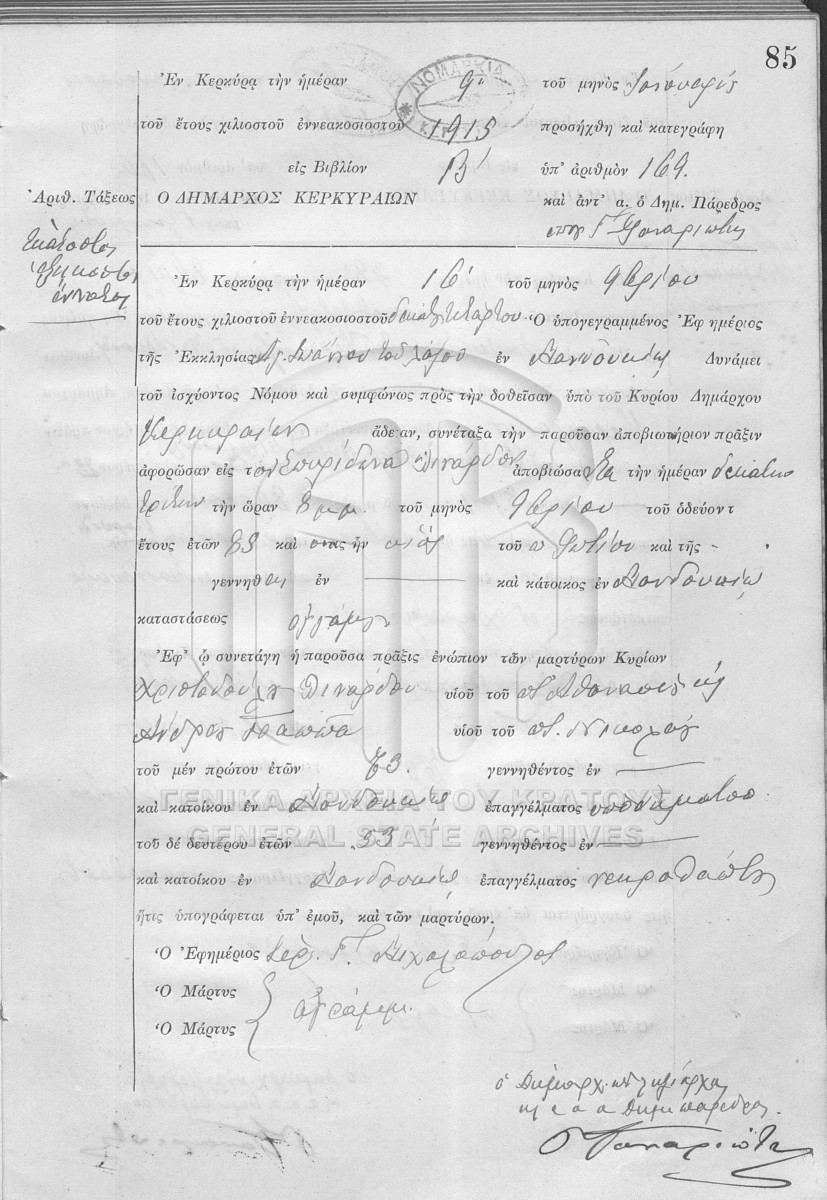 85
ΝΟΜΑΡΧΙΑ
Ἐν Κερκύρᾳ τὴν ἡμέραν 9ῃ τοῦ μηνὸς Ἰανουαρίου
τοῦ ἔτους χιλιοστοῦ ἐννεακοσιοστοῦ 1915 προσήχθη καὶ κατεγράφη
εἰς Βιβλίον Β' ὑπ' ἀριθμὸν 169.
Ἀριθ. Τάξεως Ο ΔΗΜΑΡΧΟΣ ΚΕΡΚΥΡΑΙΩΝ καὶ ἀντ' α. ὁ Δημ. Πάρεδρος
Ἑκατοστὸς
ἑξηκοστὸς
ἔννατος
Ἐν Κερκύρᾳ τὴν ἡμέραν τοῦ μηνὸς 9βρίου
τοῦ ἔτους χιλιοστοῦ ἐννεακοσιοστοῦ δεκάτου τετάρτου Ὁ ὑπογεγραμμένος Ἐφημέριος
τῆς Ἐκκλησίας Ἁγ. Ἰωάννου τοῦ Λάζου ἐν Μανδουκίῳ Δυνάμει
τοῦ ἰσχύοντος Νόμου καὶ συμφώνως πρὸς τὴν δοθεῖσαν ὑπὸ τοῦ Κυρίου Δημάρχου
Κερκυραίων ἄδειαν, συνέταξα τὴν παροῦσαν ἀποβιωτήριον πρᾶξιν
ἀφορῶσαν εἰς τὸν Σπυρίδωνα ἀποβιώσαντα τὴν ἡμέραν δεκάτην
τρίτην τὴν ὥραν 8 μμ τοῦ μηνὸς 9βρίου τοῦ ὁδεύοντ
ἔτους ἐτῶν καὶ ἦν υἱὸς τοῦ π. Φωτίου καὶ τῆς -
γεννηθεὶς ἐν καὶ κάτοικος ἐν Μανδουκίῳ
καταστάσεως ἀγάμου
Ἐφ' ᾧ συνετάγη ἡ παροῦσα πρᾶξις ἐνώπιον τῶν μαρτύρων Κυρίων
Χριστοδούλου υἱοῦ τοῦ π. Ἀθανασίου καὶ
Ἀνδρέου Παππᾶ υἱοῦ τοῦ π. Νικολάου
τοῦ μὲν πρώτου ἐτῶν γεννηθέντος ἐν
καὶ κατοίκου ἐν Μανδουκίῳ ἐπαγγέλματος ὑποδηματοπ
τοῦ δὲ δευτέρου ἐτῶν 53 γεννηθέντος ἐν
καὶ κατοίκου ἐν Μανδουκίῳ ἐπαγγέλματος νεκροθάπτου
ἥτις ὑπογράφεται ὑπ' ἐμοῦ, καὶ τῶν μαρτύρων.
Ὁ Ἐφημέριος Ἱερ. Γ. Μιχαλόπουλος
Ὁ Μάρτυς ἀγράμμ.
Ὁ Μάρτυς
ΓΕΝΙΚΑ ΑΡΧΕΙΑ ΤΟΥ ΚΡΑΤΟΥΣ
GENERAL STATE ARCHIVES